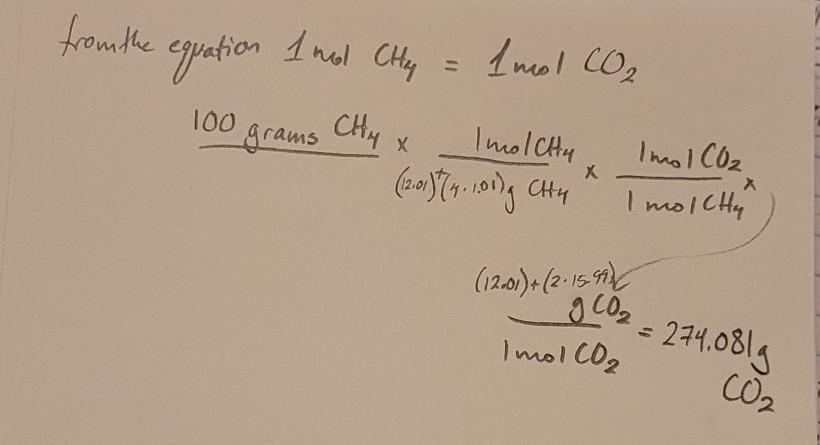 from the equation 1 mol CH4 = 1 mol CO2
100 grams CH4 x 1 mol CH4 / (12.01)+(4·1.01)g CH4 x 1 mol CO2 / 1 mol CH4 x
(12.01)+(2·15.99) g CO2 / 1 mol CO2 = 274.081g CO2